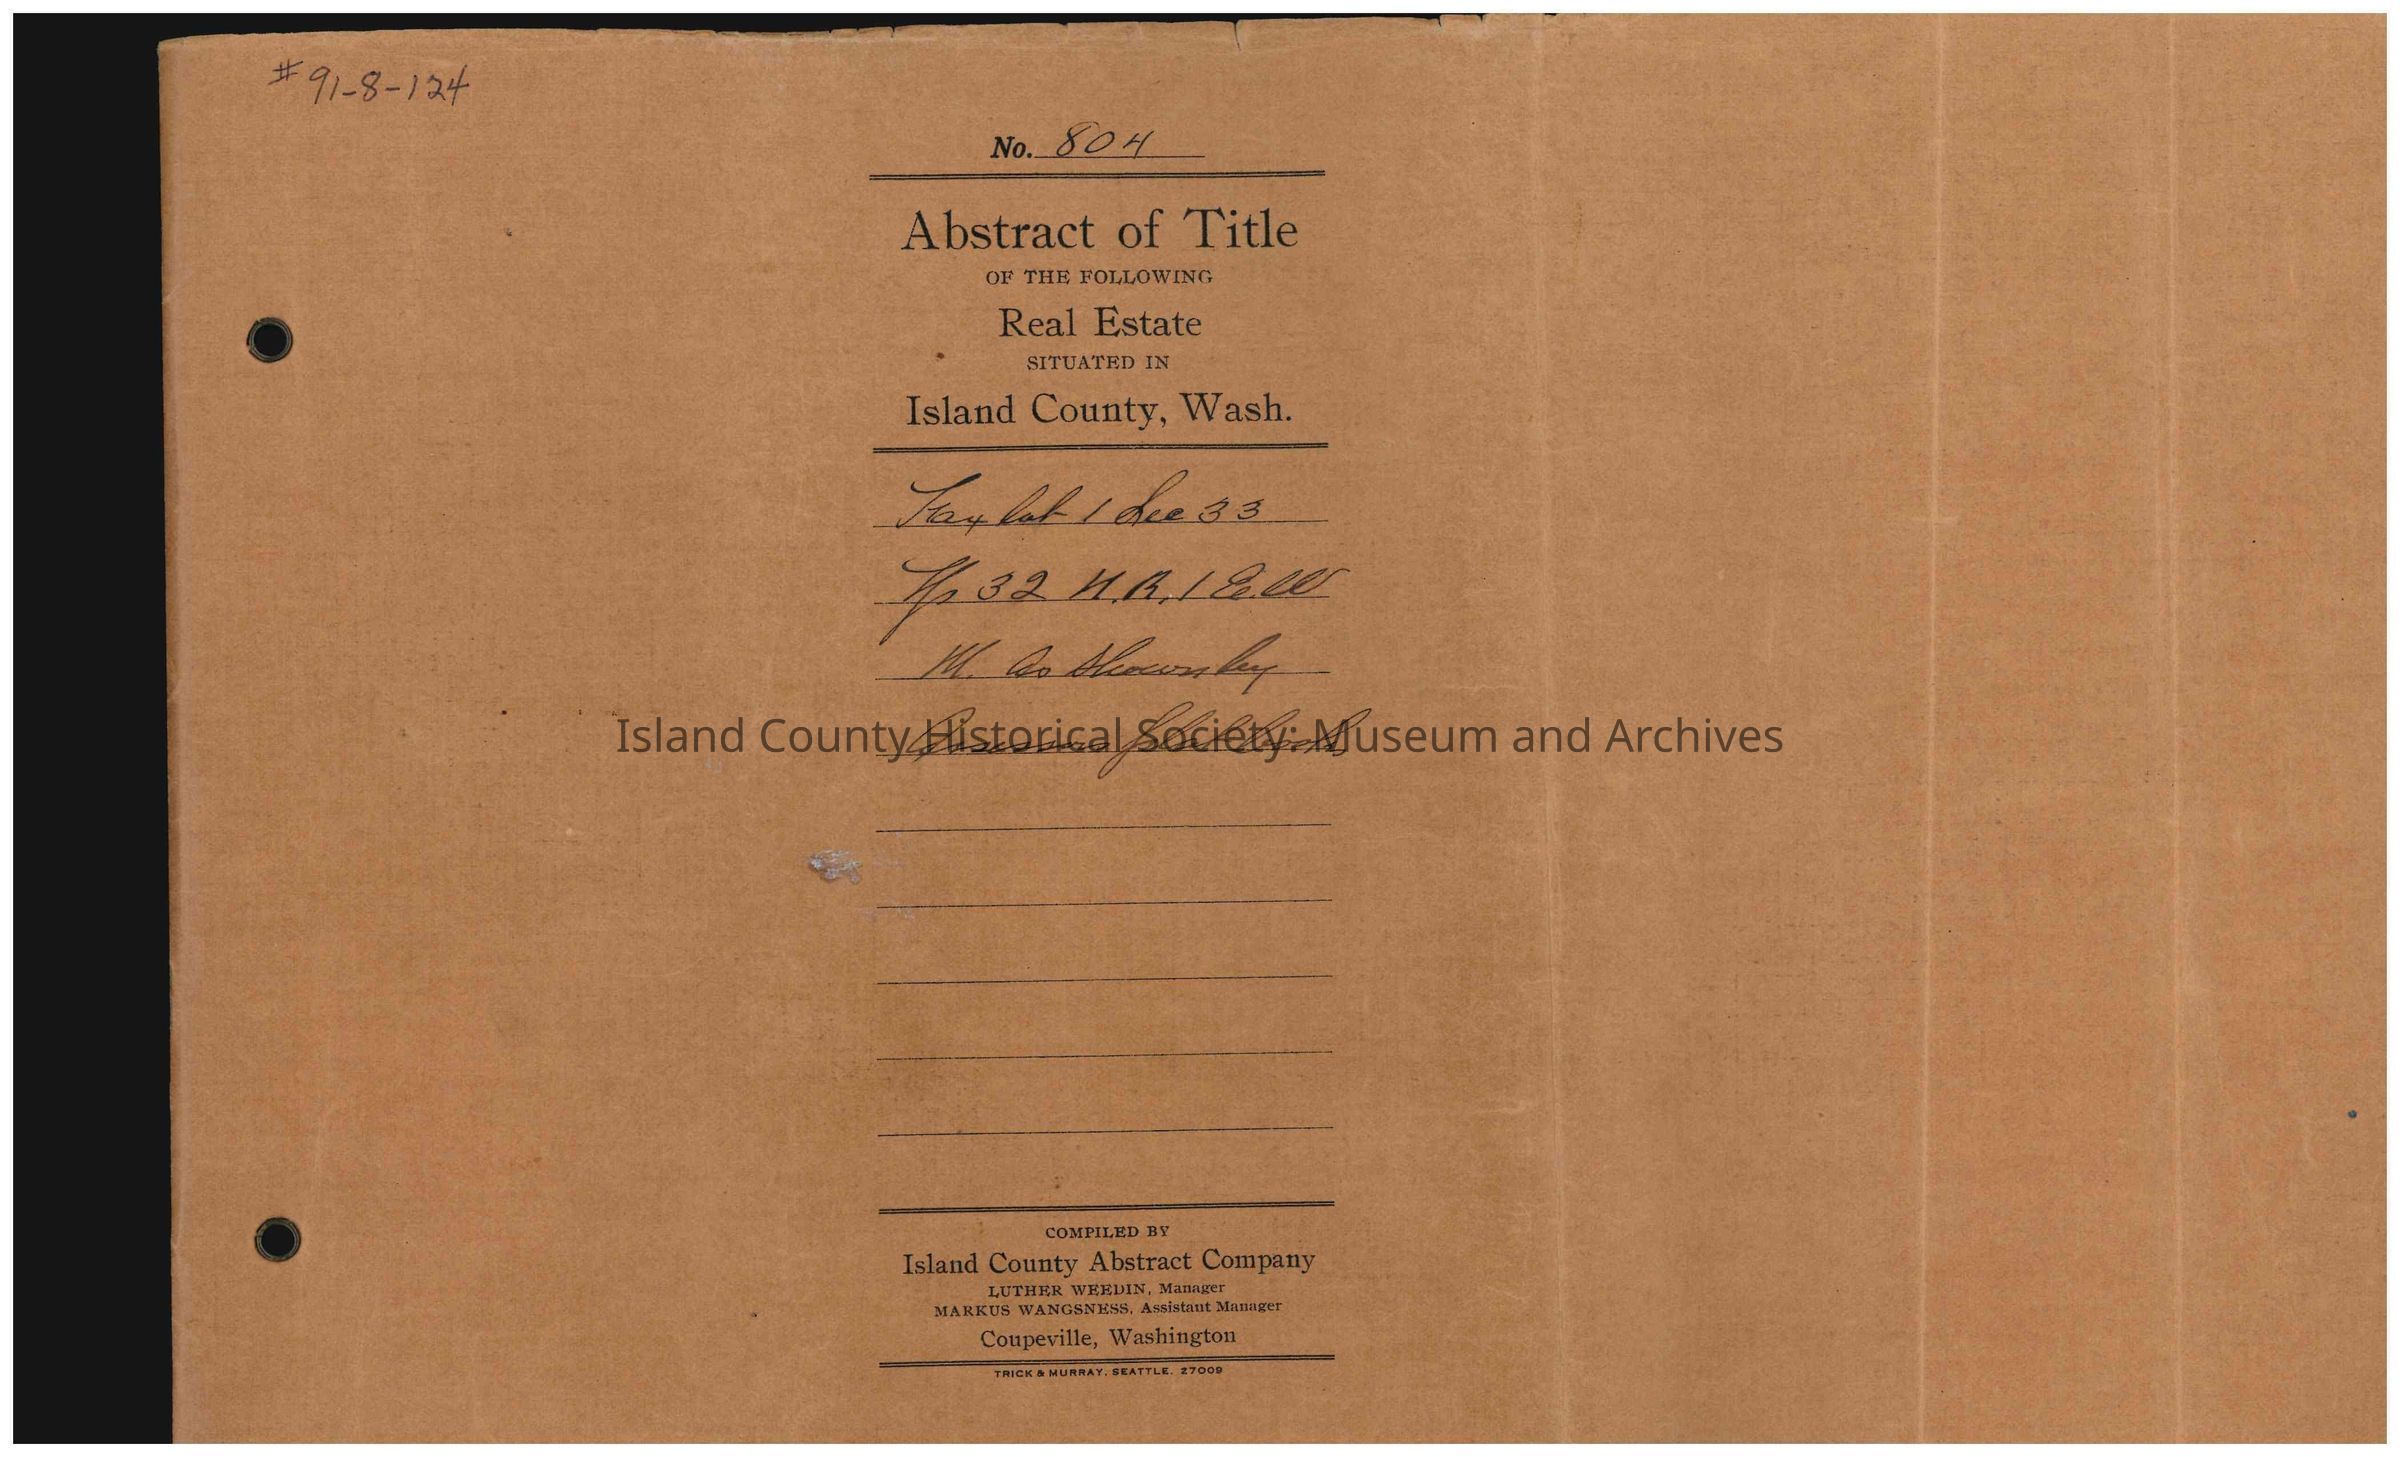 # 91-8-124
No. 804
Abstract of Title
OF THE FOLLOWING
Real Estate
SITUATED IN
Island County, Wash.
Tax lot 1 Sec 33
Tp 32 N.R. 1 E.W
M. as shown by
Island County Historical Society: Museum and Archives
COMPILED BY
Island County Abstract Company
LUTHER WEEDIN, Manager
MARKUS WANGSNESS, Assistant Manager
Coupeville, Washington
TRICK & MURRAY, SEATTLE. 27009